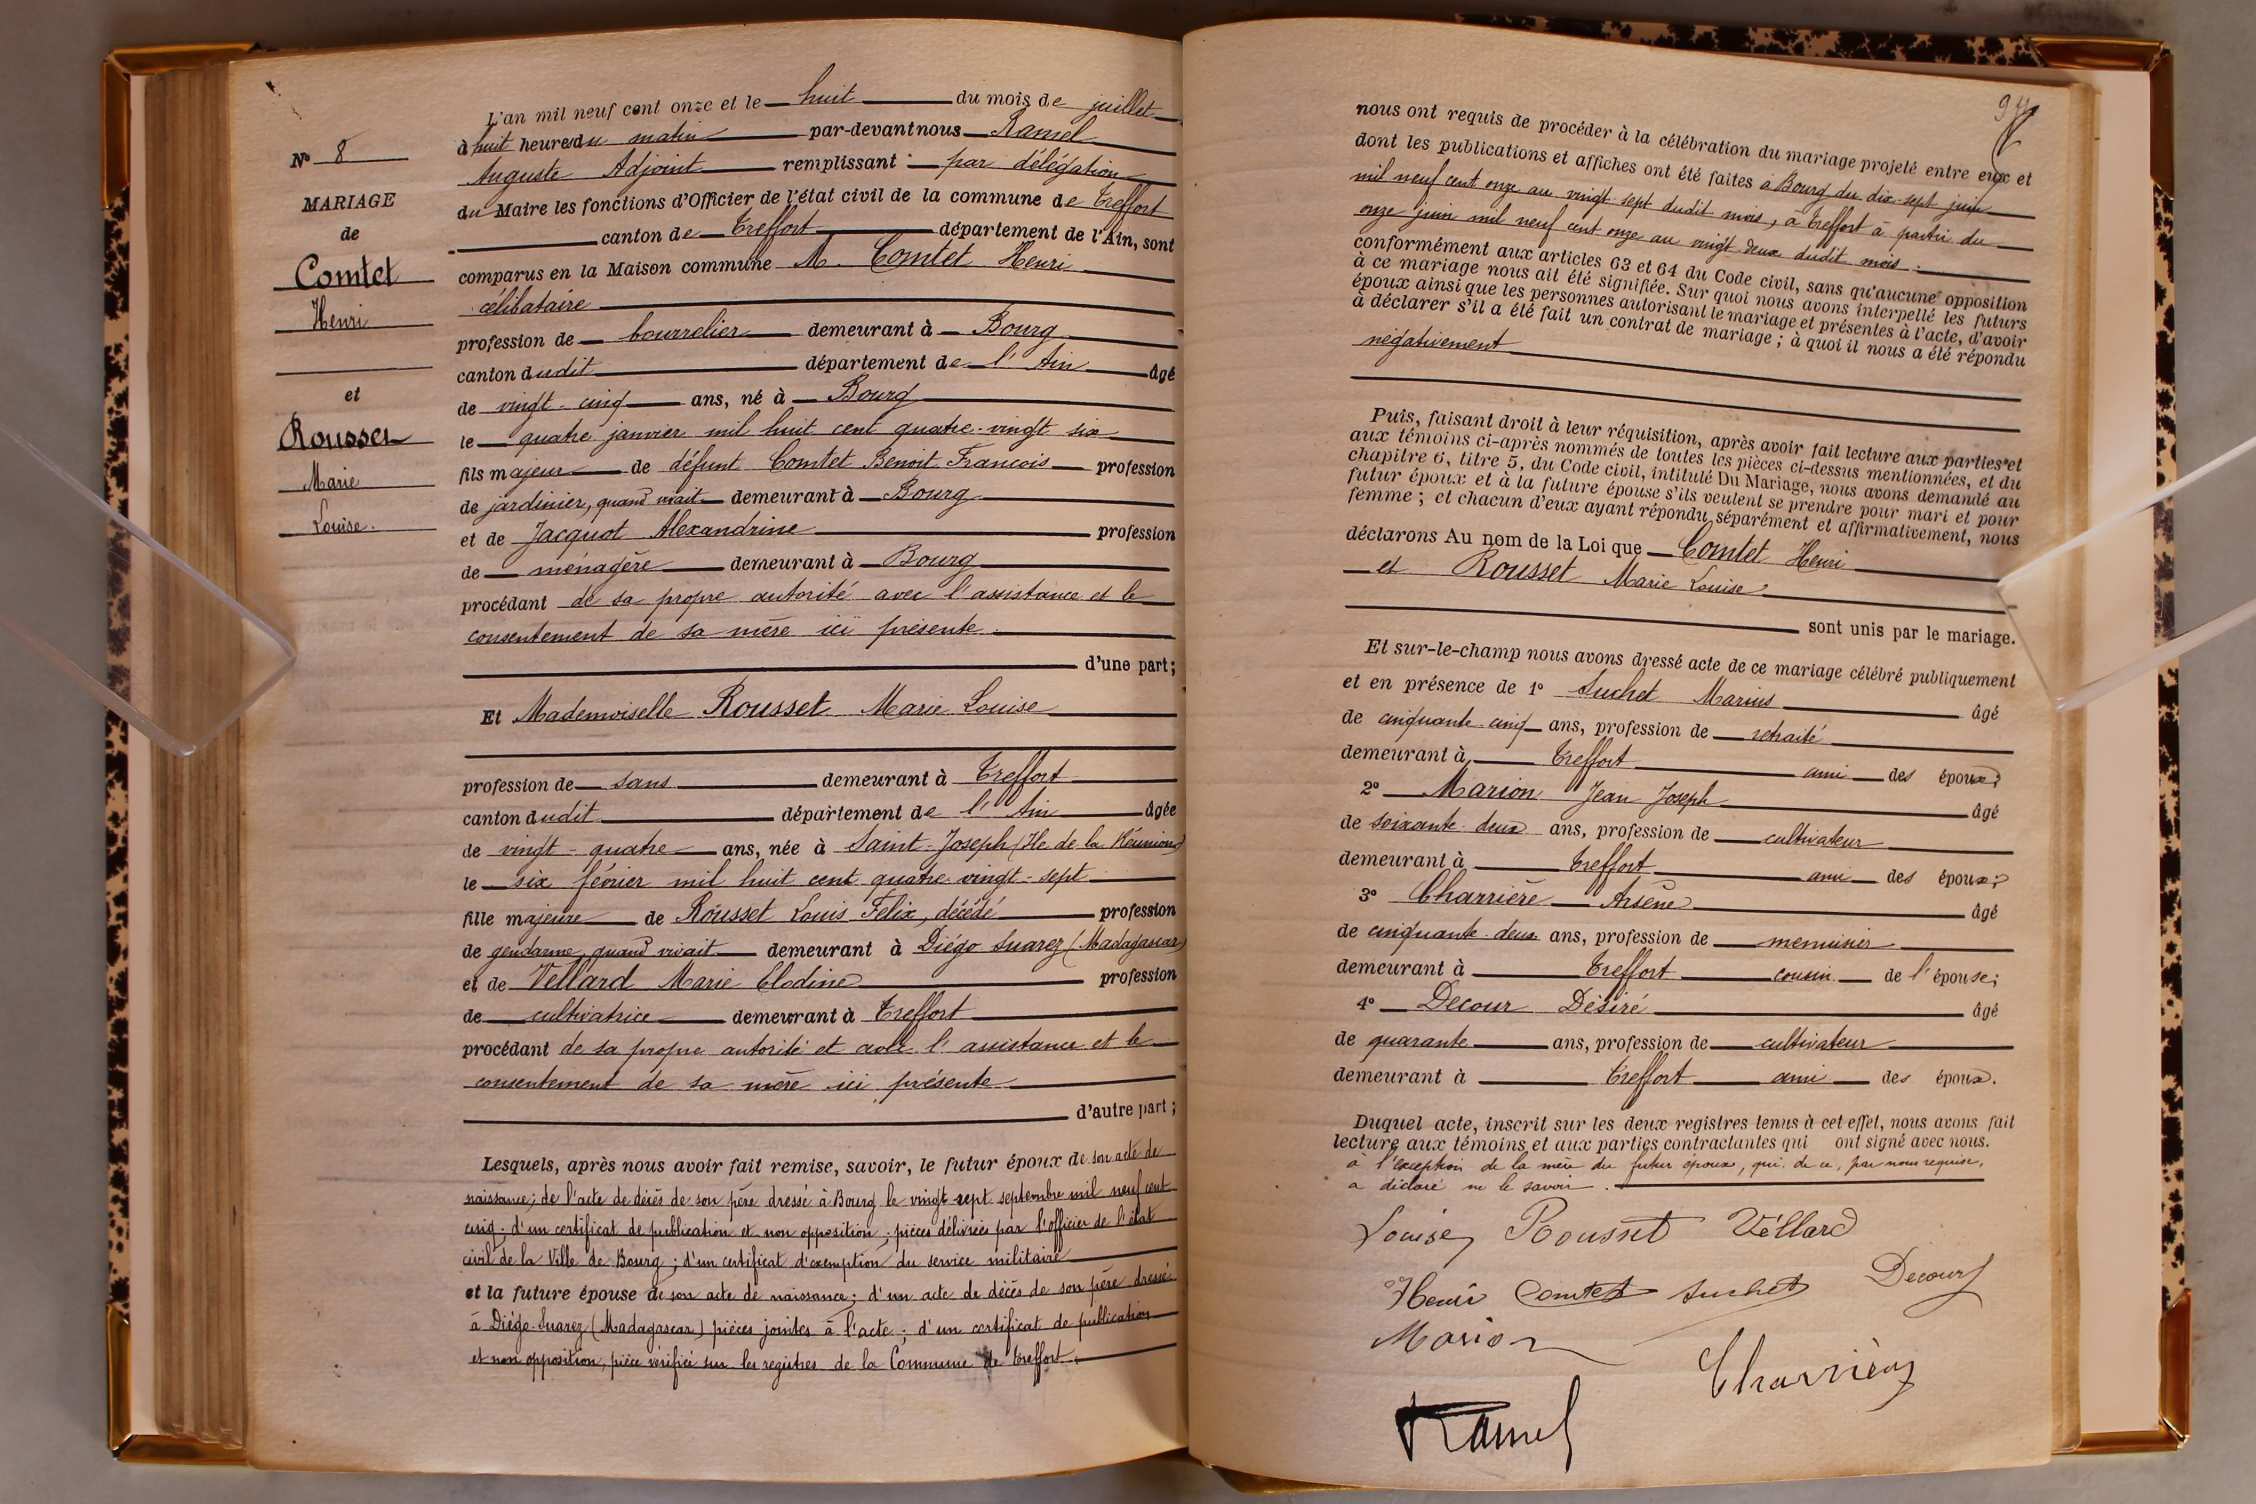 N° 8
MARIAGE
de
Comtet
Henri
et
Rousset
Marie
Louise.
L'an mil neuf cent onze et le huit du mois de juillet
à huit heures du matin par-devant nous Ramel
Auguste Adjoint remplissant par délégation
du Maire les fonctions d'Officier de l'état civil de la commune de Treffort
canton de Treffort département de l'Ain, sont
comparus en la Maison commune M. Comtet Henri
célibataire
profession de bourrelier demeurant à Bourg
canton dudit département de l'Ain âgé
de vingt-cinq ans, né à Bourg
le quatre janvier mil huit cent quatre-vingt six
fils majeur de défunt Comtet Benoit Francois profession
de jardinier, quand vivait demeurant à Bourg
et de Jacquot Alexandrine profession
de ménagère demeurant à Bourg
procédant de sa propre autorité avec l'assistance et le
consentement de sa mère ici présente
d'une part;
Et Mademoiselle Rousset Marie Louise
profession de sans demeurant à Treffort
canton dudit département de l'Ain âgée
de vingt-quatre ans, née à Saint-Joseph (Ile de la Réunion)
le six février mil huit cent quatre-vingt-sept
fille majeure de Rousset Louis Felix, décédé profession
de gendarme quand vivait demeurant à Diégo Suarez (Madagascar)
et de Vellard Marie Elodine profession
de cultivatrice demeurant à Treffort
procédant de sa propre autorité et avec l'assistance et le
consentement de sa mère ici présente
d'autre part;
Lesquels, après nous avoir fait remise, savoir, le futur époux de son acte de
naissance; de l'acte de décès de son père dressé à Bourg le vingt-sept septembre mil neuf cent
cinq; d'un certificat de publication et non opposition; pièces délivrées par l'officier de l'état
civil de la Ville de Bourg; d'un certificat d'exemption du service militaire
et la future épouse de son acte de naissance; d'un acte de décès de son père dressé
à Diégo-Suarez (Madagascar) pièces jointes à l'acte; d'un certificat de publication
et non opposition, pièce vérifiée sur les registres de la Commune de Treffort;
nous ont requis de procéder à la célébration du mariage projeté entre eux et
dont les publications et affiches ont été faites à Bourg du dix-sept juin
mil neuf cent onze au vingt-sept dudit mois, à Treffort à partir du
onze juin mil neuf cent onze au vingt deux dudit mois.
conformément aux articles 63 et 64 du Code civil, sans qu'aucune opposition
à ce mariage nous ait été signifiée. Sur quoi nous avons interpellé les futurs
époux ainsi que les personnes autorisant le mariage et présentes à l'acte, d'avoir
à déclarer s'il a été fait un contrat de mariage; à quoi il nous a été répondu
négativement
Puis, faisant droit à leur réquisition, après avoir fait lecture aux parties et
aux témoins ci-après nommés de toutes les pièces ci-dessus mentionnées, et du
chapitre 6, titre 5, du Code civil, intitulé Du Mariage, nous avons demandé au
futur époux et à la future épouse s'ils veulent se prendre pour mari et pour
femme; et chacun d'eux ayant répondu séparément et affirmativement, nous
déclarons Au nom de la Loi que Comtet Henri
et Rousset Marie Louise
sont unis par le mariage.
Et sur-le-champ nous avons dressé acte de ce mariage célébré publiquement
et en présence de 1° Suchet Marius âgé
de cinquante-cinq ans, profession de retraité
demeurant à Treffort ami des époux;
2° Marion Jean Joseph âgé
de soixante-deux ans, profession de cultivateur
demeurant à Treffort ami des époux;
3° Charrière Arsène âgé
de cinquante-deux ans, profession de menuisier
demeurant à Treffort cousin de l'épouse;
4° Decour Désiré âgé
de quarante ans, profession de cultivateur
demeurant à Treffort ami des époux.
Duquel acte, inscrit sur les deux registres tenus à cet effet, nous avons fait
lecture aux témoins et aux parties contractantes qui ont signé avec nous.
à l'exception de la mère du futur époux, qui, de ce, par nous requise,
a déclaré ne le savoir.
Louise Rousset Véllard
Henri Comtet Suchet Decour
Marion
Charrière
Ramel